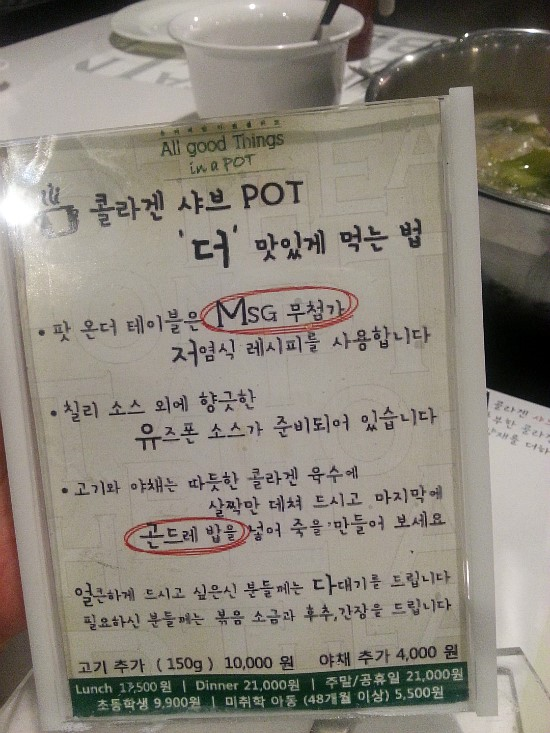 All good Things
in a POT
콜라겐 샤브 POT
'더' 맛있게 먹는 법
• 팟 온더 테이블은 MSG 무첨가
저염식 레시피를 사용합니다
• 칠리 소스 외에 향긋한
유즈폰 소스가 준비되어 있습니다
• 고기와 야채는 따듯한 콜라겐 육수에
살짝만 데쳐 드시고 마지막에
곤드레 밥을 넣어 죽을 만들어 보세요
얼큰하게 드시고 싶은신 분들께는 다대기를 드립니다
필요하신 분들께는 볶음 소금과 후추,간장을 드립니다
고기 추가 (150g) 10,000 원 야채 추가 4,000 원
Lunch 17,500원 | Dinner 21,000원 | 주말/공휴일 21,000원
초등학생 9,900원 | 미취학 아동 (48개월 이상) 5,500원
콜라겐